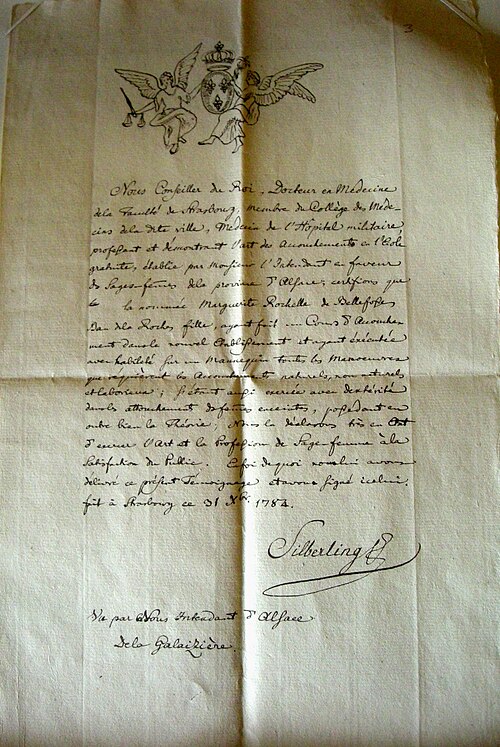 3
Nous Conseiller du Roi, Docteur en Médecine
dela Faculté de Strasbourg, membre du Collège des Méde-
cins de la dite ville, Médecin de l'Hopital militaire,
professant et démontrant l'art des Accouchements en l'Ecole
gratuite, établie par monsieur l'Intendant en faveur
des Sages-femmes dela province d'Alsace; certifions que
la nommée Marguerite Rochelle de Bellefosse
Ban dela Roche, fille, ayant fait un Cours d'Accouche-
ment dans le nouvel établissement et ayant exécutée
avec habileté sur un Mannequin toutes les Manoeuvres
que requièrent les Accouchements naturels, non naturels
et laborieux; s'étant aussi exercée avec dextérité
dans l'attouchement des femmes enceintes, possédant en
outre bien la Théorie; Nous la déclarons très en Etat
d'exercer l'Art et la Profession de Sage-femme à la
Satisfaction du Public. En foi de quoi nous lui avons
délivré ce présent Témoignage et avons signé icelui.
fait à Strasbourg ce 31 Xbr. 1784.
Silberling
Vu par Nous Intendant d'Alsace
Dela Galaizière